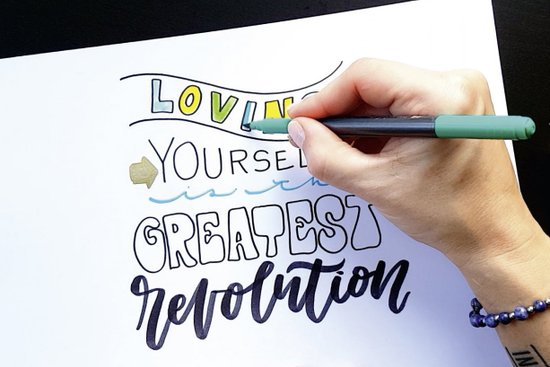 LOVIN
YOURSEL
is th
GREATEST
revolution
IN